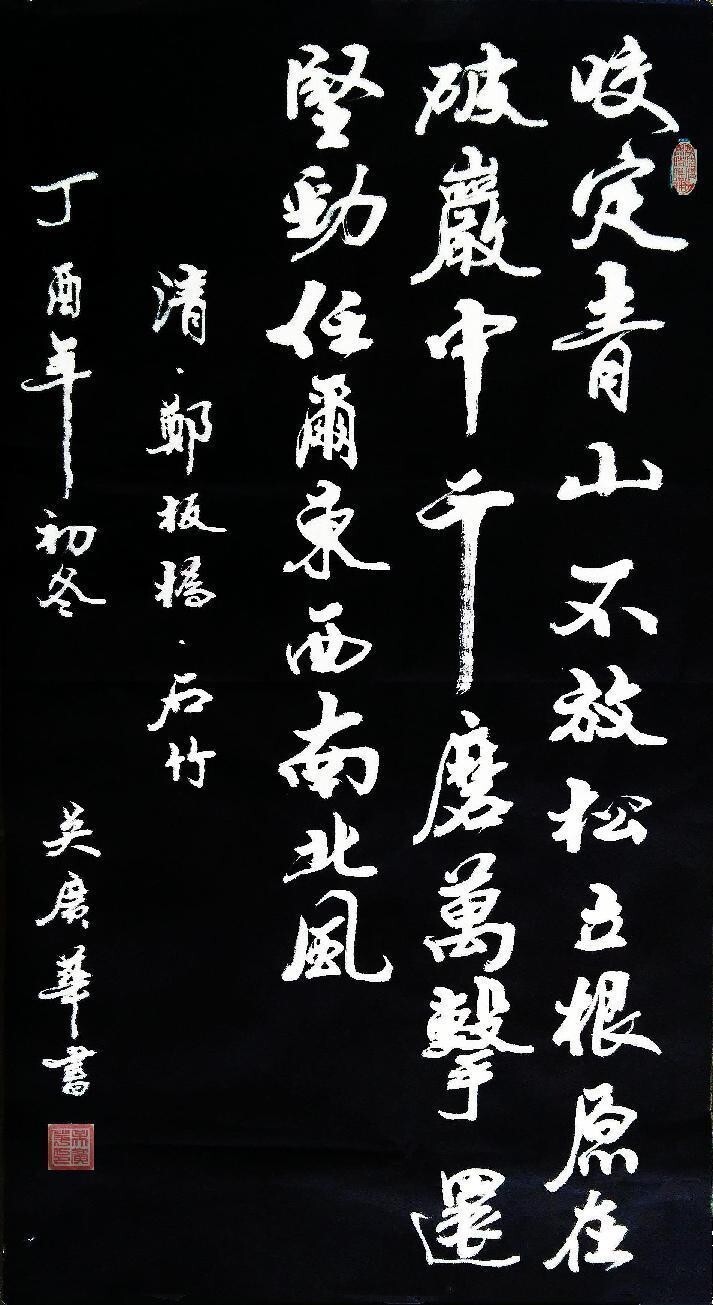 咬定青山不放松立根原在
破巖中千磨萬擊還
堅勁任爾東西南北風
清·鄭板橋·石竹
丁酉年初冬 吴廣華書